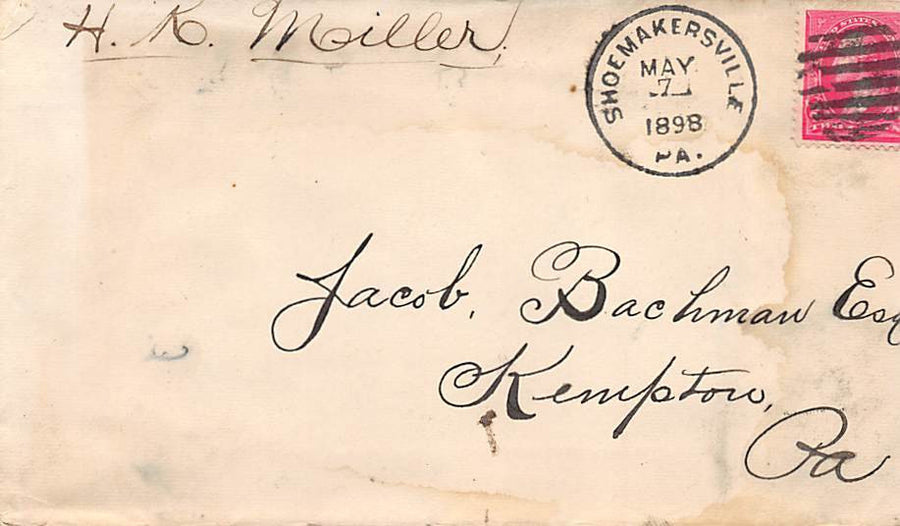 H. K. Miller,
SHOEMAKERSVILLE
MAY
7
1898
PA.
Jacob, Bachman Esq
Kempton,
Pa